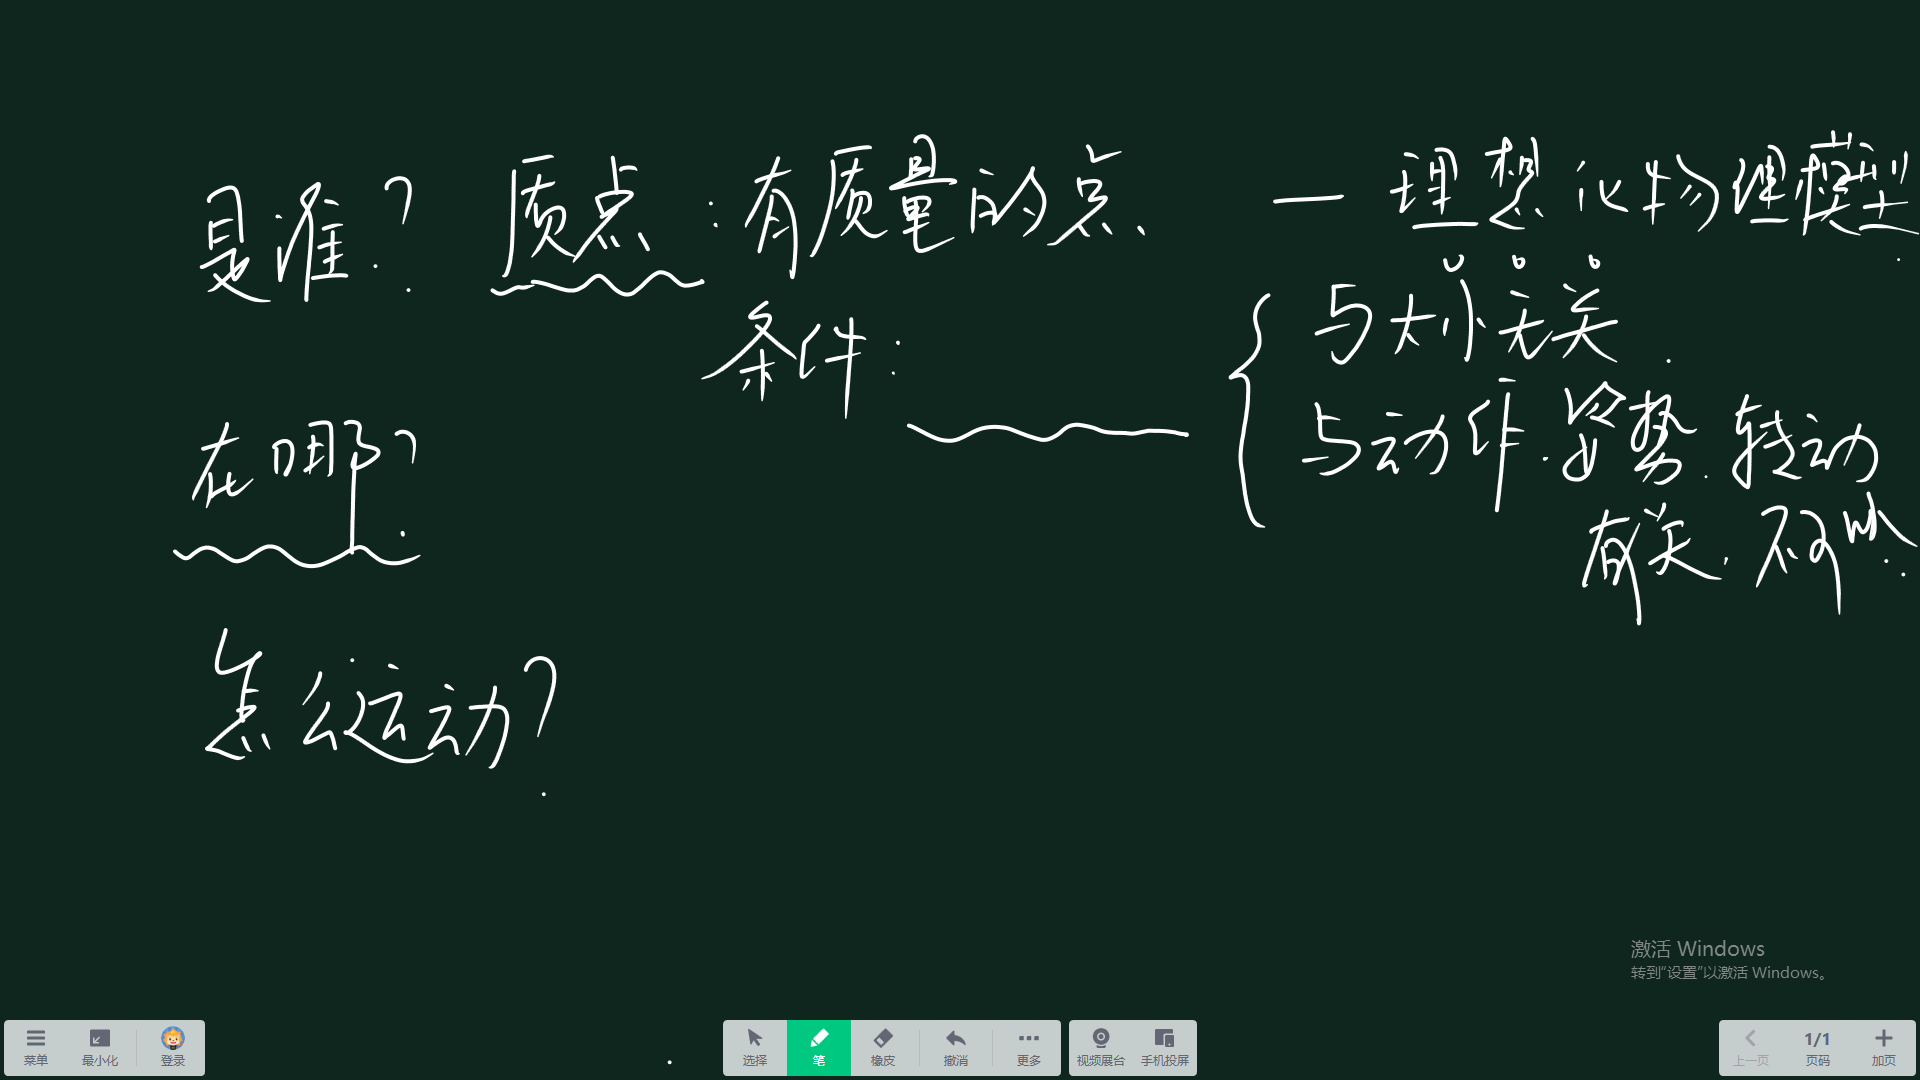 是谁？ 质点：有质量的点. — 理想化物理模型.
条件： 与大小无关.
在哪？ 与动作.姿势.转动
有关，不可以.
怎么运动？
激活 Windows
转到“设置”以激活 Windows。
菜单 最小化 登录 选择 笔 橡皮 撤消 更多 视频展台 手机投屏 上一页 1/1 页码 加页